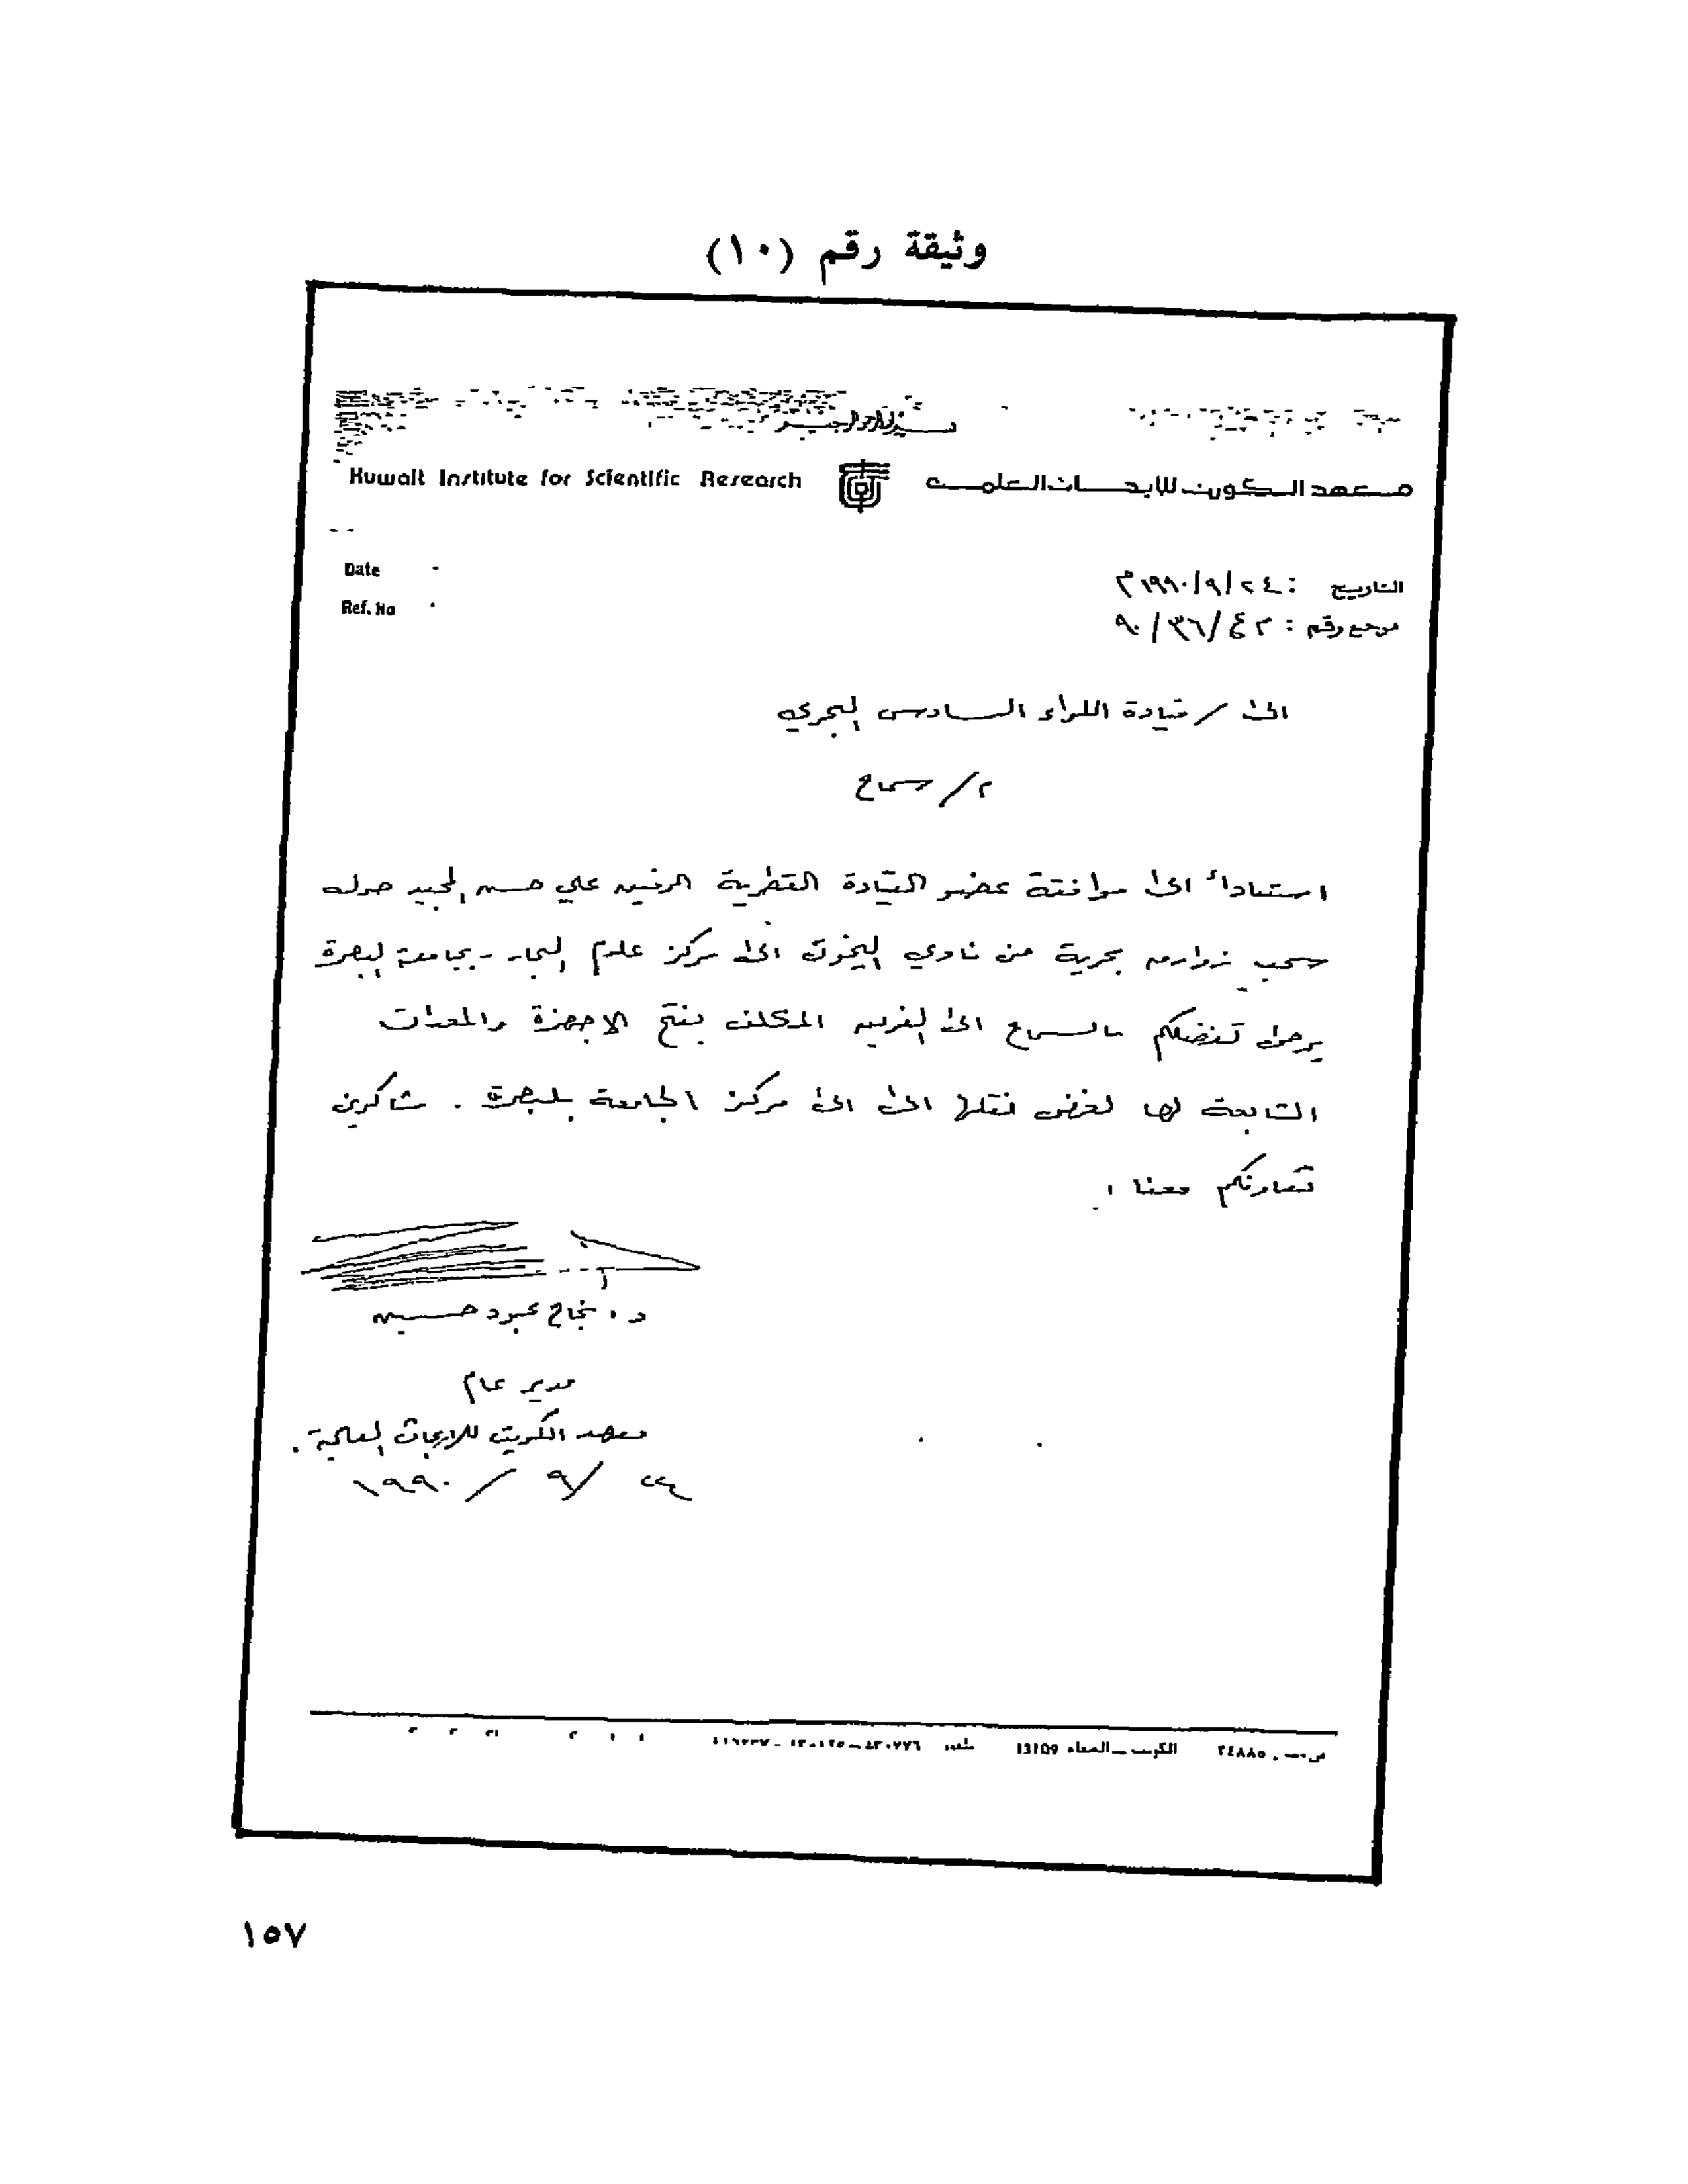 وثيقة رقم (١٠)
بسم الله الرحمن الرحيم
Kuwait Institute for Scientific Research
معهد الكويت للأبحاث العلمية
Date
Ref. No
التاريخ : ٢٤/٩/١٩٩٠م
مرجع رقم : ٤٢/٣٦/٩٠
الى / قيادة اللواء السادس البحري
م/ سماح
استناداً الى موافقة عضو القيادة القطرية الرفيق علي حسن المجيد حول
سحب زوارق بحرية من نادي اليخوت الى مركز علوم البحار - بجامعة البصرة
يرجى تفضلكم بالسماح الى الفريق المكلف بفتح الاجهزة والمعدات
التابعة لها لغرض نقلها الى الى مركز الجامعة بالبصرة . شاكرين
تعاونكم معنا ،
د . نجاح عبود حسين
مدير عام
معهد الكويت للابحاث العلمية .
٢٤ / ٩ / ١٩٩٠
ص.ب. ٢٤٨٨٥ الكويت - الصفاة 13109
١٥٧